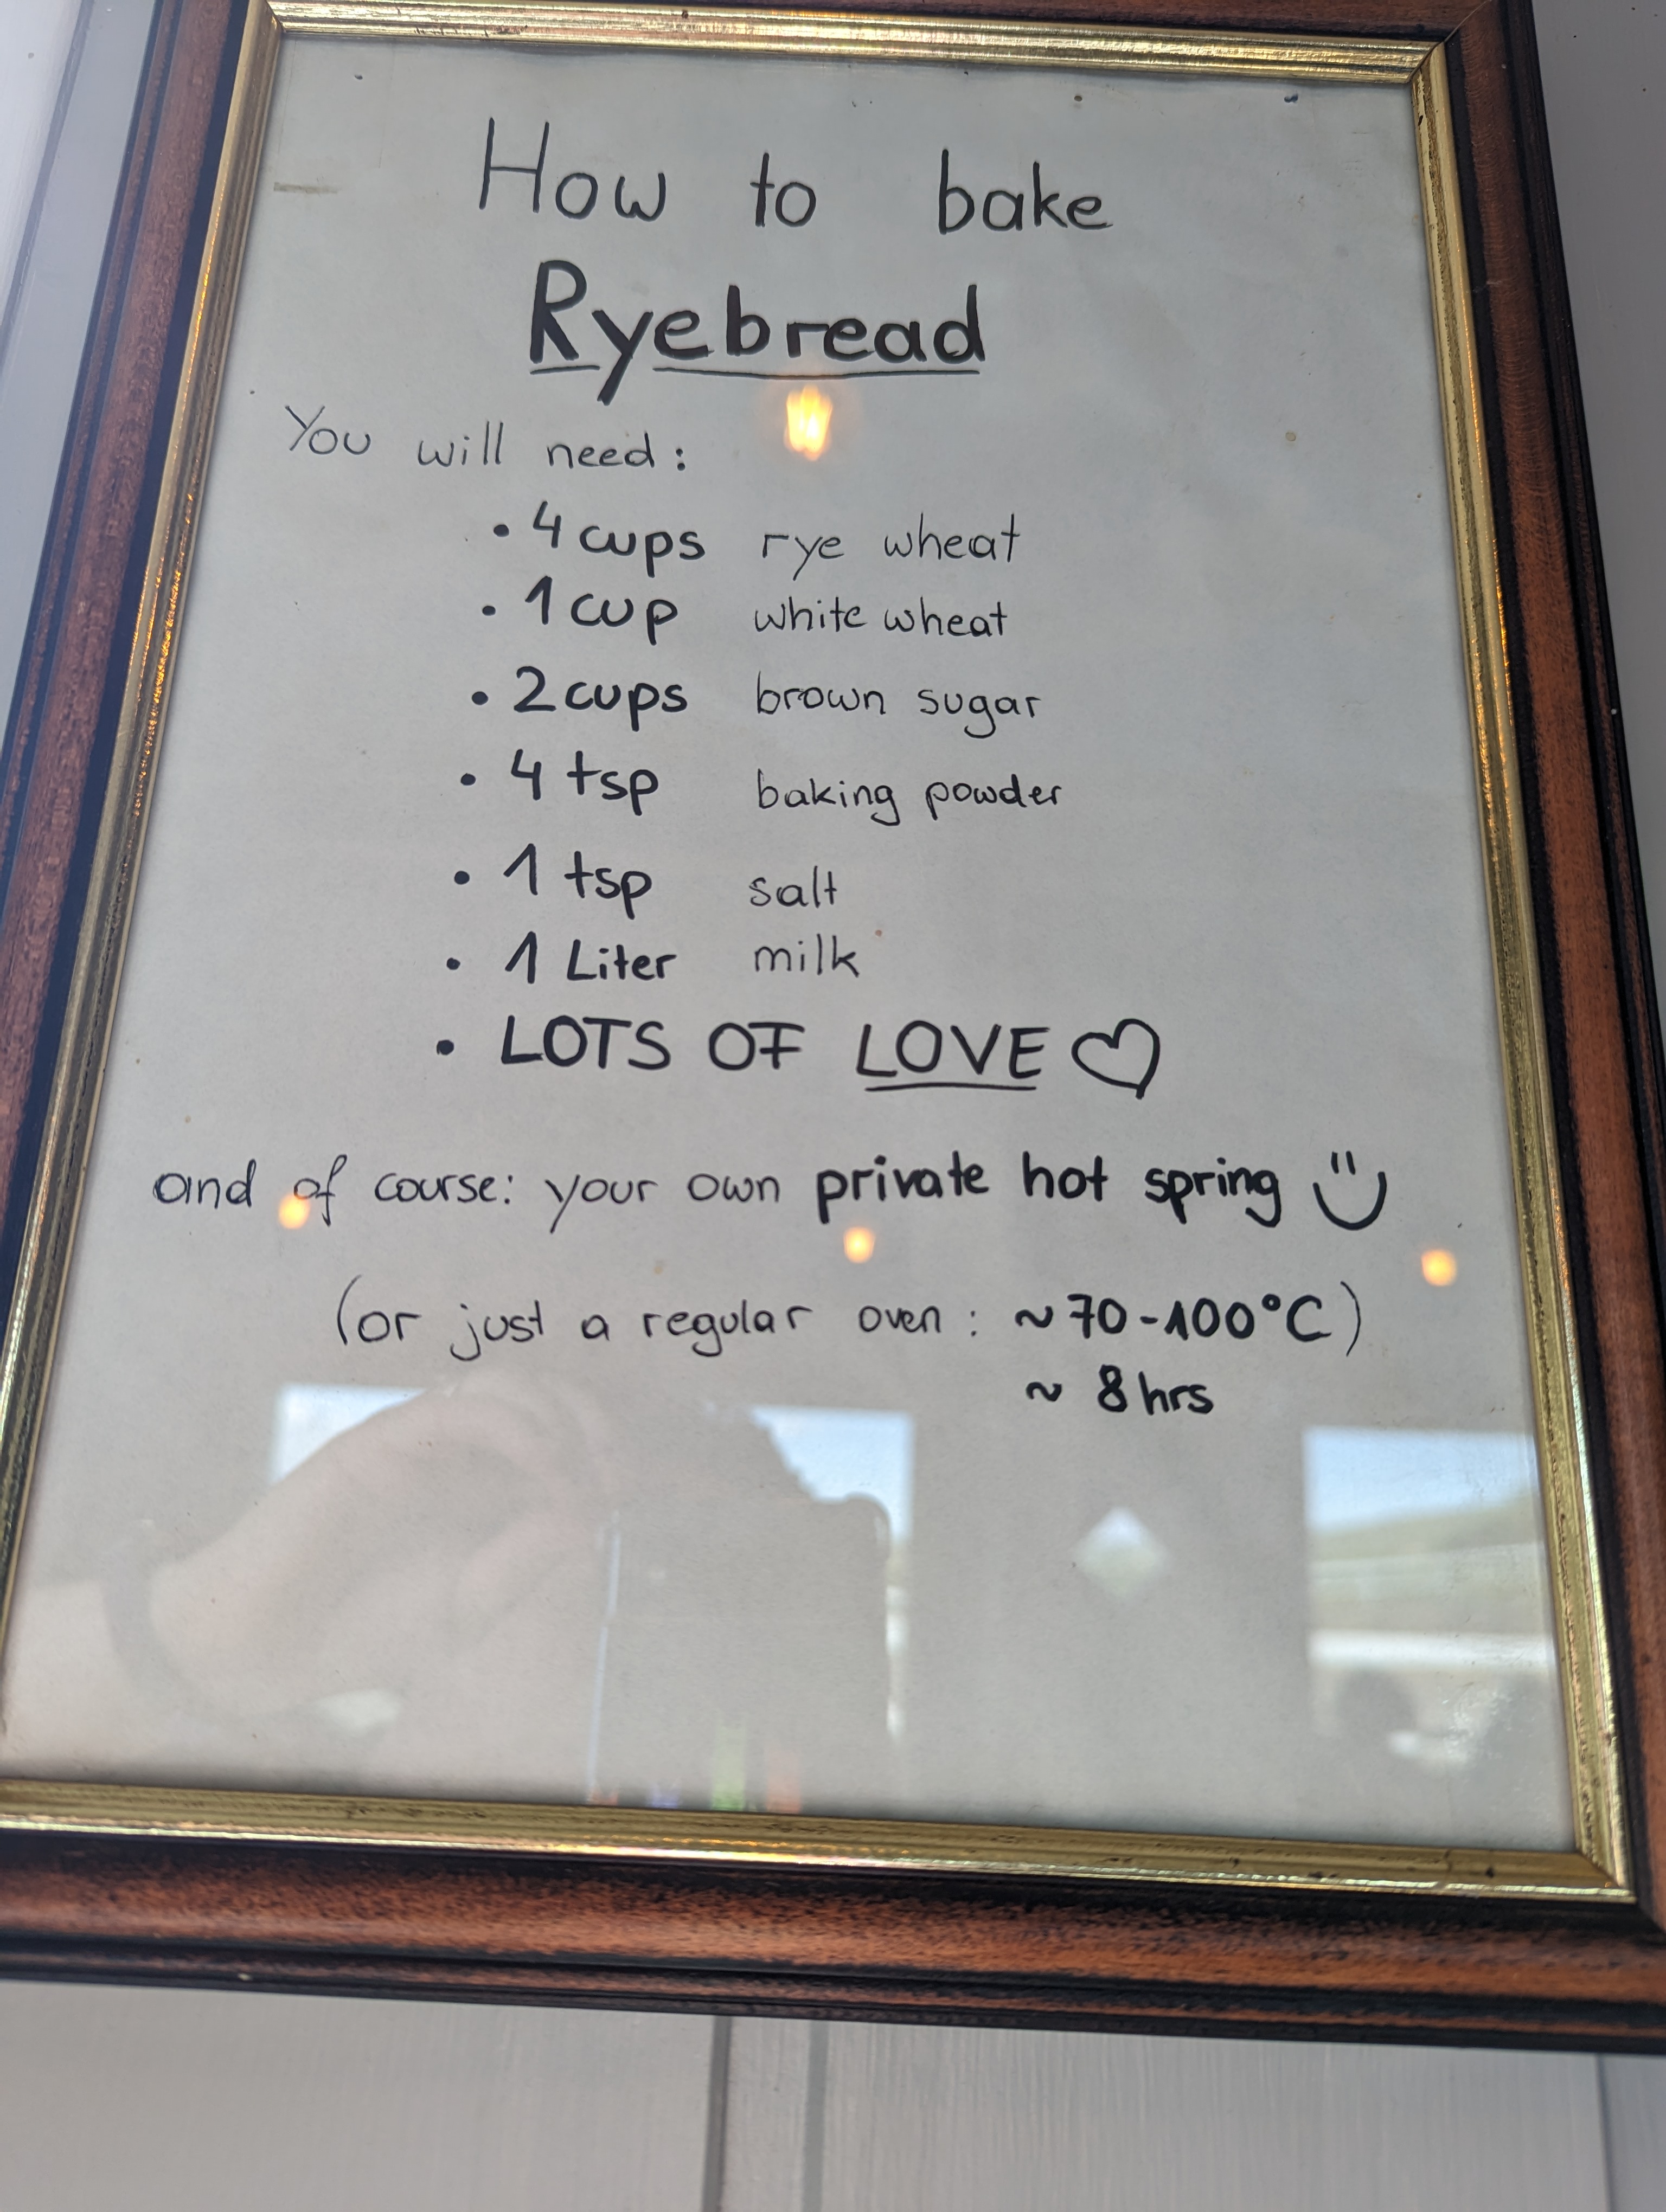 How to bake
Ryebread
You will need:
• 4 cups rye wheat
• 1 cup white wheat
• 2 cups brown sugar
• 4 tsp baking powder
• 1 tsp salt
• 1 Liter milk
• LOTS OF LOVE ♡
and of course: your own private hot spring :)
(or just a regular oven: ~70-100°C)
~ 8 hrs